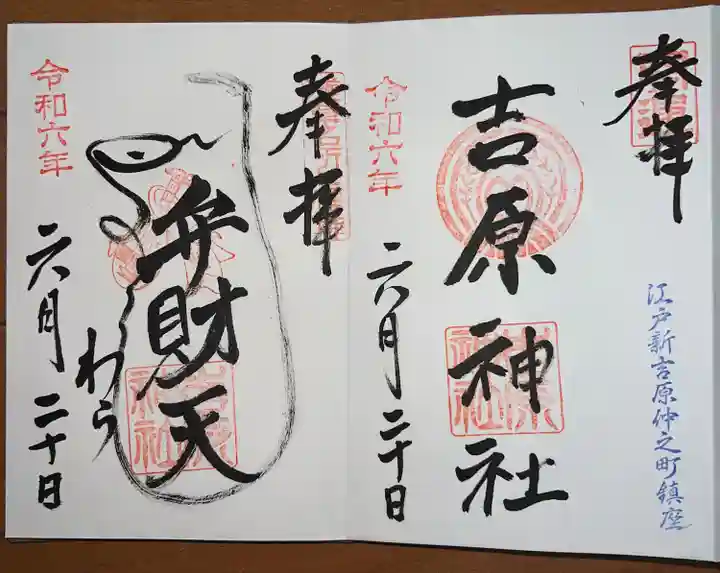 奉拝
江戸新吉原仲之町鎮座
吉原神社
令和六年
六月二十日
奉拝
弁財天
わら
令和六年
六月二十日